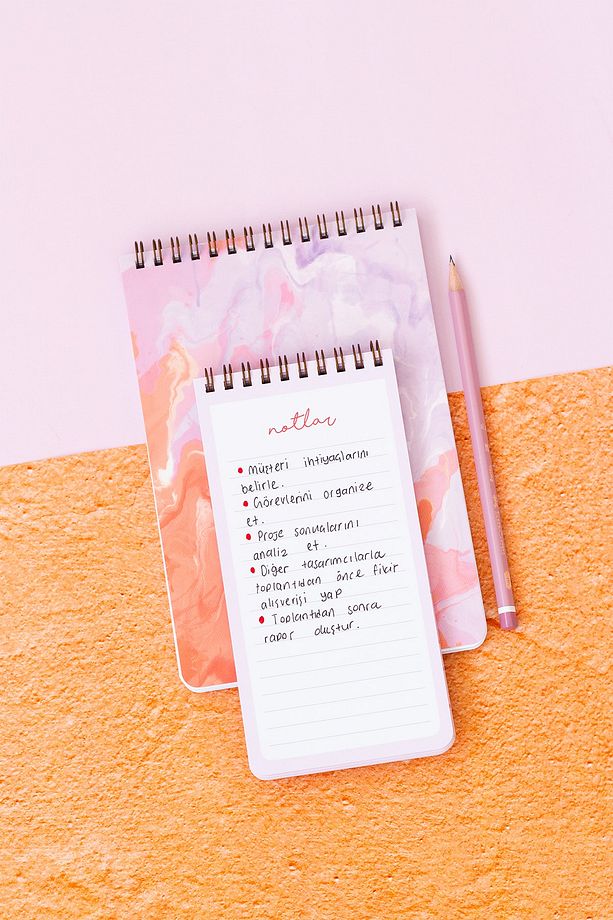 notlar
• Müşteri ihtiyaçlarını
belirle.
• Görevlerini organize
et.
• Proje sonuçlarını
analiz et.
• Diğer tasarımcılarla
toplantıdan önce fikir
alışverişi yap
• Toplantıdan sonra
rapor oluştur.